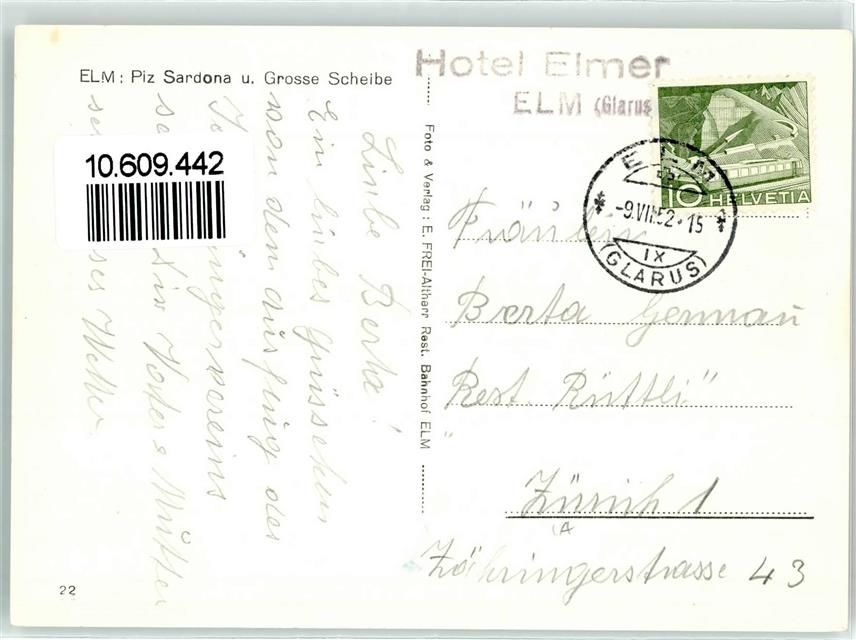 ELM: Piz Sardona u. Grosse Scheibe
Hotel Elmer
ELM (Glarus
10 HELVETIA
ELM
-9.VII.52-15
IX
(GLARUS)
10.609.442
Foto & Verlag: E. FREI-Altherr Rest. Bahnhof ELM
Liebe Berta!
Ein liebes Grüsschen
von dem Ausflug des
vereins
Dir Vater & Mutter
Wetter
Fräulein
Berta Gennau
Rest. Rüttli"
"
Zürich 1
Zähringerstrasse 43
22